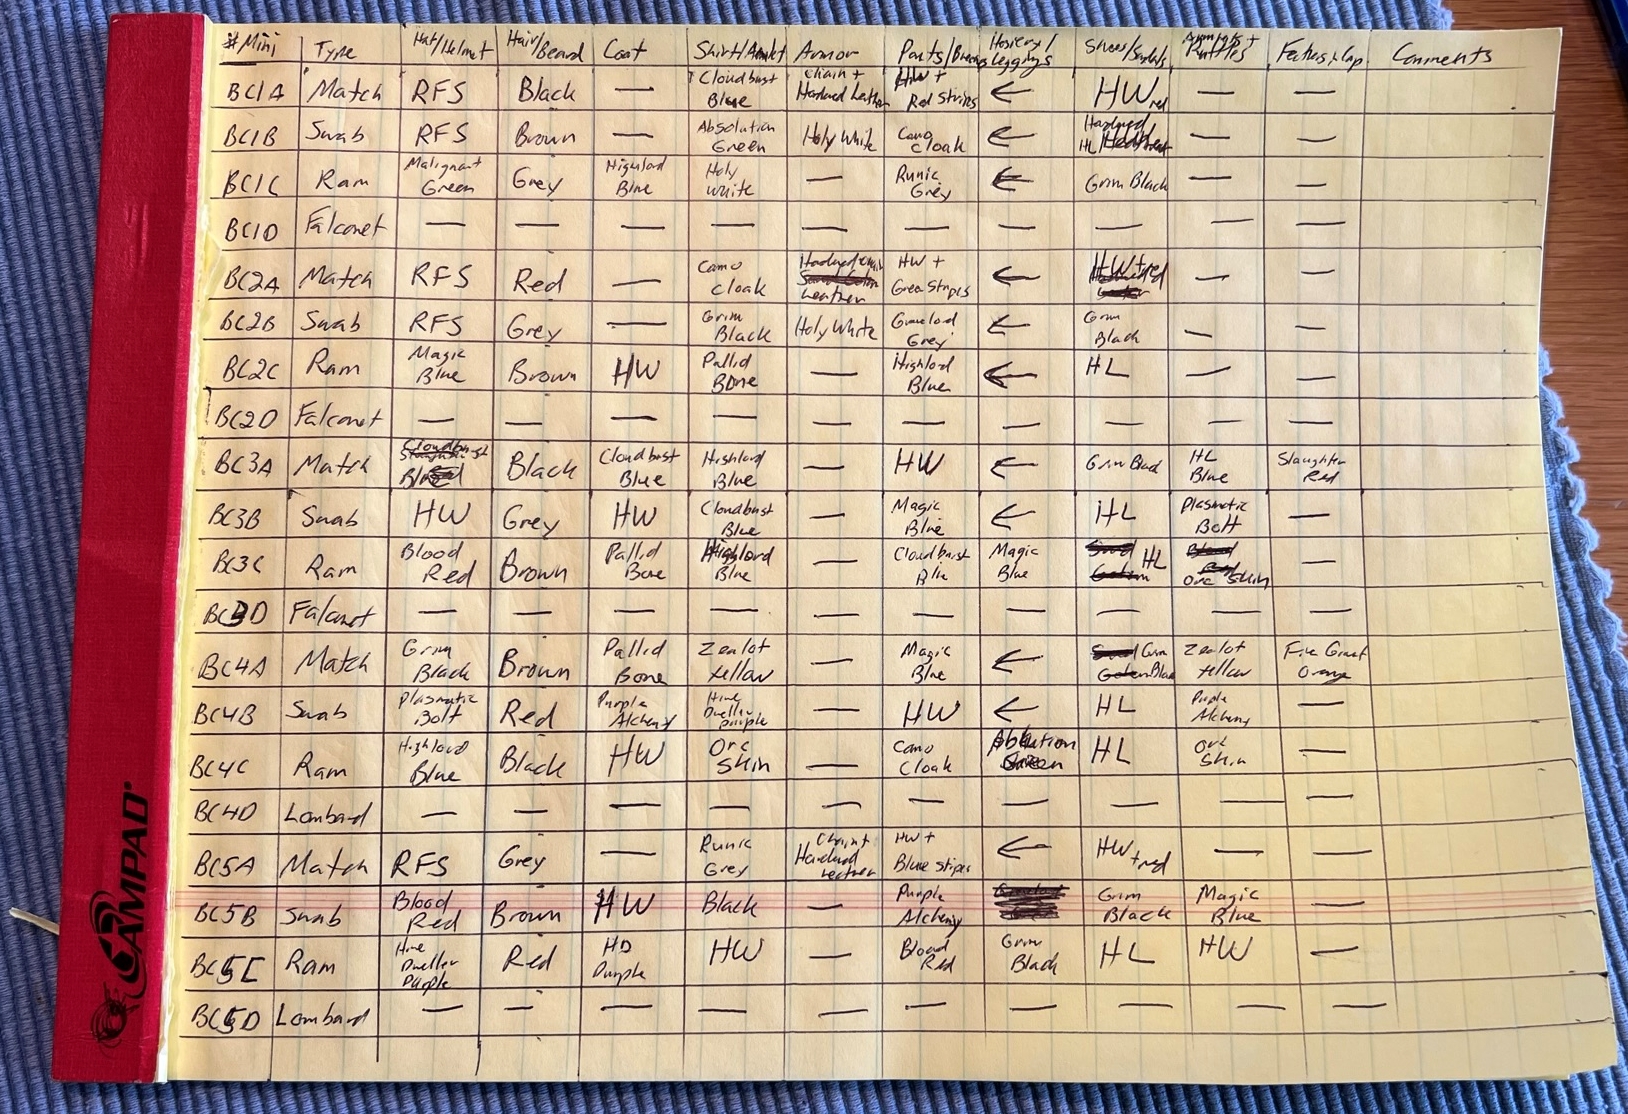 # Mini Type Hat/Helmet Hair/Beard Coat Shirt/ Armor Pants/ Hosiery/Leggings Shoes/ Comments
BC1A Match RFS Black — Cloudbust Blue Chain + Hardned Leather HW + Red Stripes ← HW red — —
BC1B Swab RFS Brown — Absolution Green Holy White Camo cloak ← HL — —
BC1C Ram Malignant Green Grey Highlord Blue Holy white — Runic Grey ← Grim Black — —
BC1D Falconet — — — — — — — — — —
BC2A Match RFS Red — Camo cloak Leather HW + Green Stripes ← — —
BC2B Swab RFS Grey — Grim Black Holy White Gravelord Grey ← Grim Black — —
BC2C Ram Magic Blue Brown HW Pallid Bone — Highlord Blue ← HL — —
BC2D Falconet — — — — — — — — —
BC3A Match Black Cloudbust Blue Highlord Blue — HW ← Grim Black HL Blue Slaughter Red
BC3B Swab HW Grey HW Cloudbust Blue — Magic Blue ← HL Plasmatic Bolt —
BC3C Ram Blood Red Brown Pallid Bone Highlord Blue — Cloudburst Blue Magic Blue HL Orc Skin —
BC3D Falconet — — — — — — — — — —
BC4A Match Grim Black Brown Pallid Bone Zealot Yellow — Magic Blue ← Grim Black Zealot Yellow Fire Orange
BC4B Swab Plasmatic Bolt Red Purple Alchemy Hive Dweller purple — HW ← HL Purple Alchemy —
BC4C Ram Highlord Blue Black HW Orc Skin — Camo cloak HL Orc Skin —
BC4D Lombard — — — — — — — — — —
BC5A Match RFS Grey — Runic Grey Chain + Hardned Leather HW + Blue Stripes ← HW + red — —
BC5B Swab Blood Red Brown HW Black — Purple Alchemy Grim Black Magic Blue —
BC5C Ram Hive Dweller Purple Red HD Purple HW — Blood Red Grim Black HL HW —
BC5D Lombard — — — — — — — — — —
CAMPAD